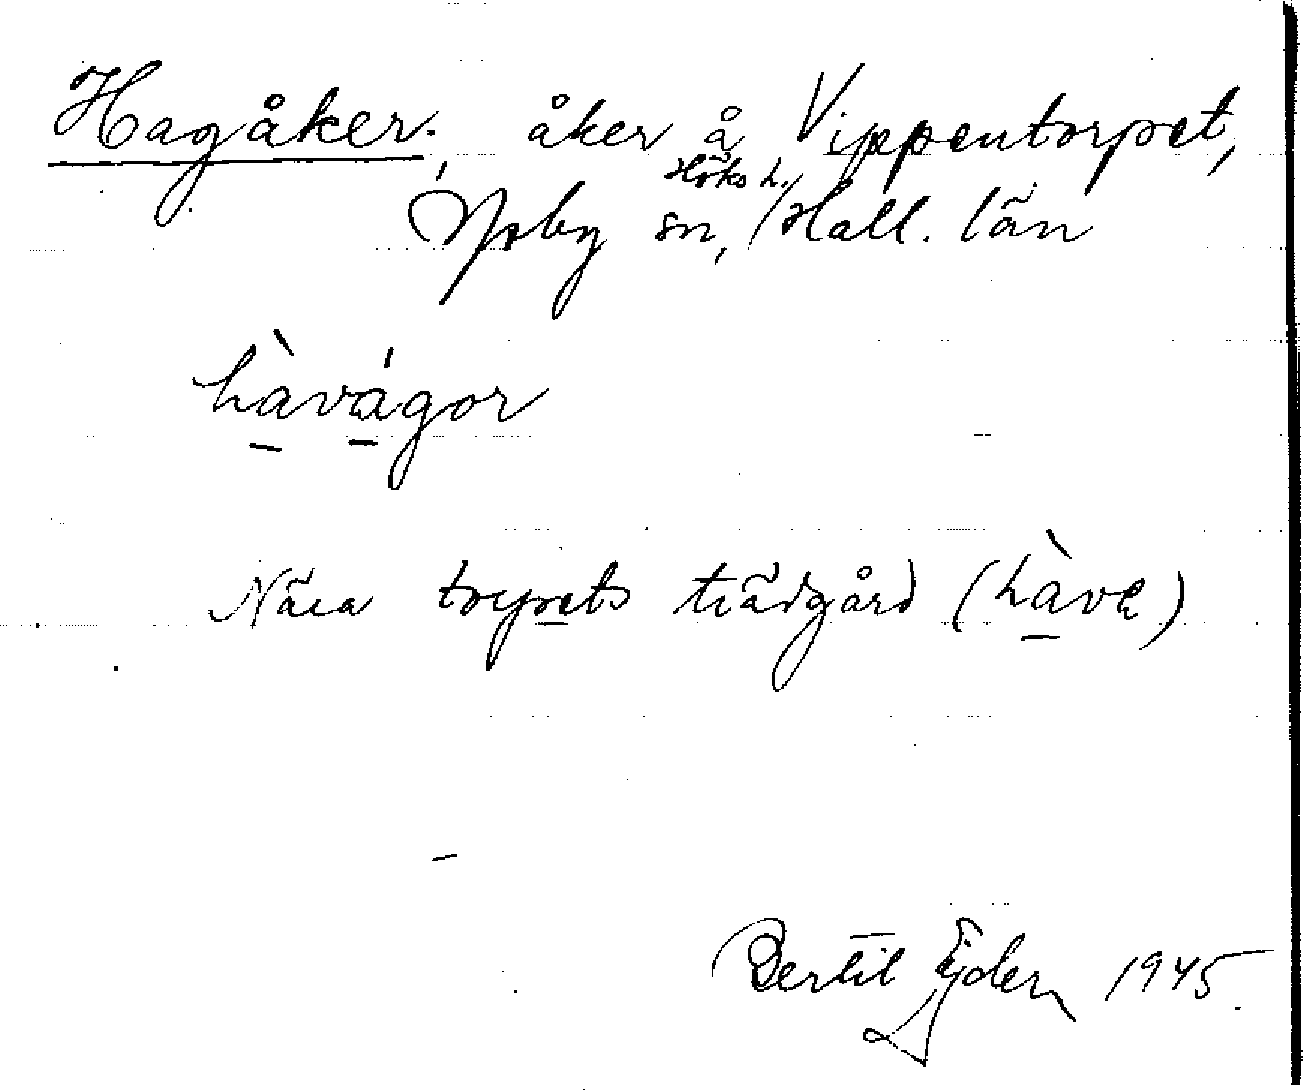 Hagåker, åker å Vippentorpet,
Höks h.
Ysby sn, Hall. län
hàvágor
Nära torpets trädgård (hàve)
Bertil Ejder 1945.